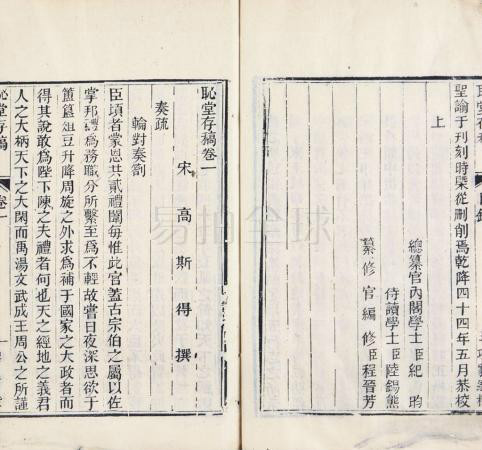 聖諭于刊刻時槩從刪削焉乾隆四十四年五月恭校
上
總纂官內閣學士臣紀昀
侍讀學士臣陸錫熊
纂修官編修臣程晉芳
恥堂存稿卷一
宋高斯得撰
奏疏
輪對奏劄
臣頃者蒙恩共貳禮闈每惟此官蓋古宗伯之屬以佐
掌邦禮爲務職分所繫至爲不輕故嘗日夜深思欲于
簠簋俎豆升降周旋之外求爲補于國家之大政者而
得其說敢爲陛下陳之夫禮者何也天之經地之義君
人之大柄天下之大閑而禹湯文武成王周公之所謹
恥堂存稿
卷一
易拍全球